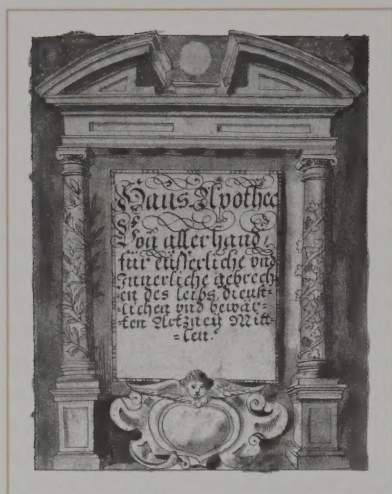 Haus Apothec
Von allerhand,
für eüsserliche vnd
Innerliche gebrech-
en des leibs, dienst-
lichen vnd bewär-
ten Artzney Mitt-
-len.